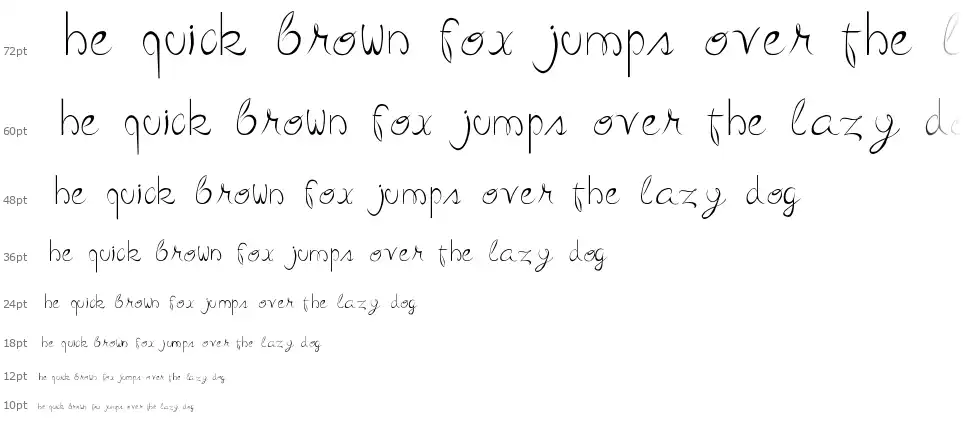 72pt he quick brown fox jumps over the l
60pt he quick brown fox jumps over the lazy do
48pt he quick brown fox jumps over the lazy dog
36pt he quick brown fox jumps over the lazy dog
24pt he quick brown fox jumps over the lazy dog
18pt he quick brown fox jumps over the lazy dog
12pt he quick brown fox jumps over the lazy dog
10pt he quick brown fox jumps over the lazy dog